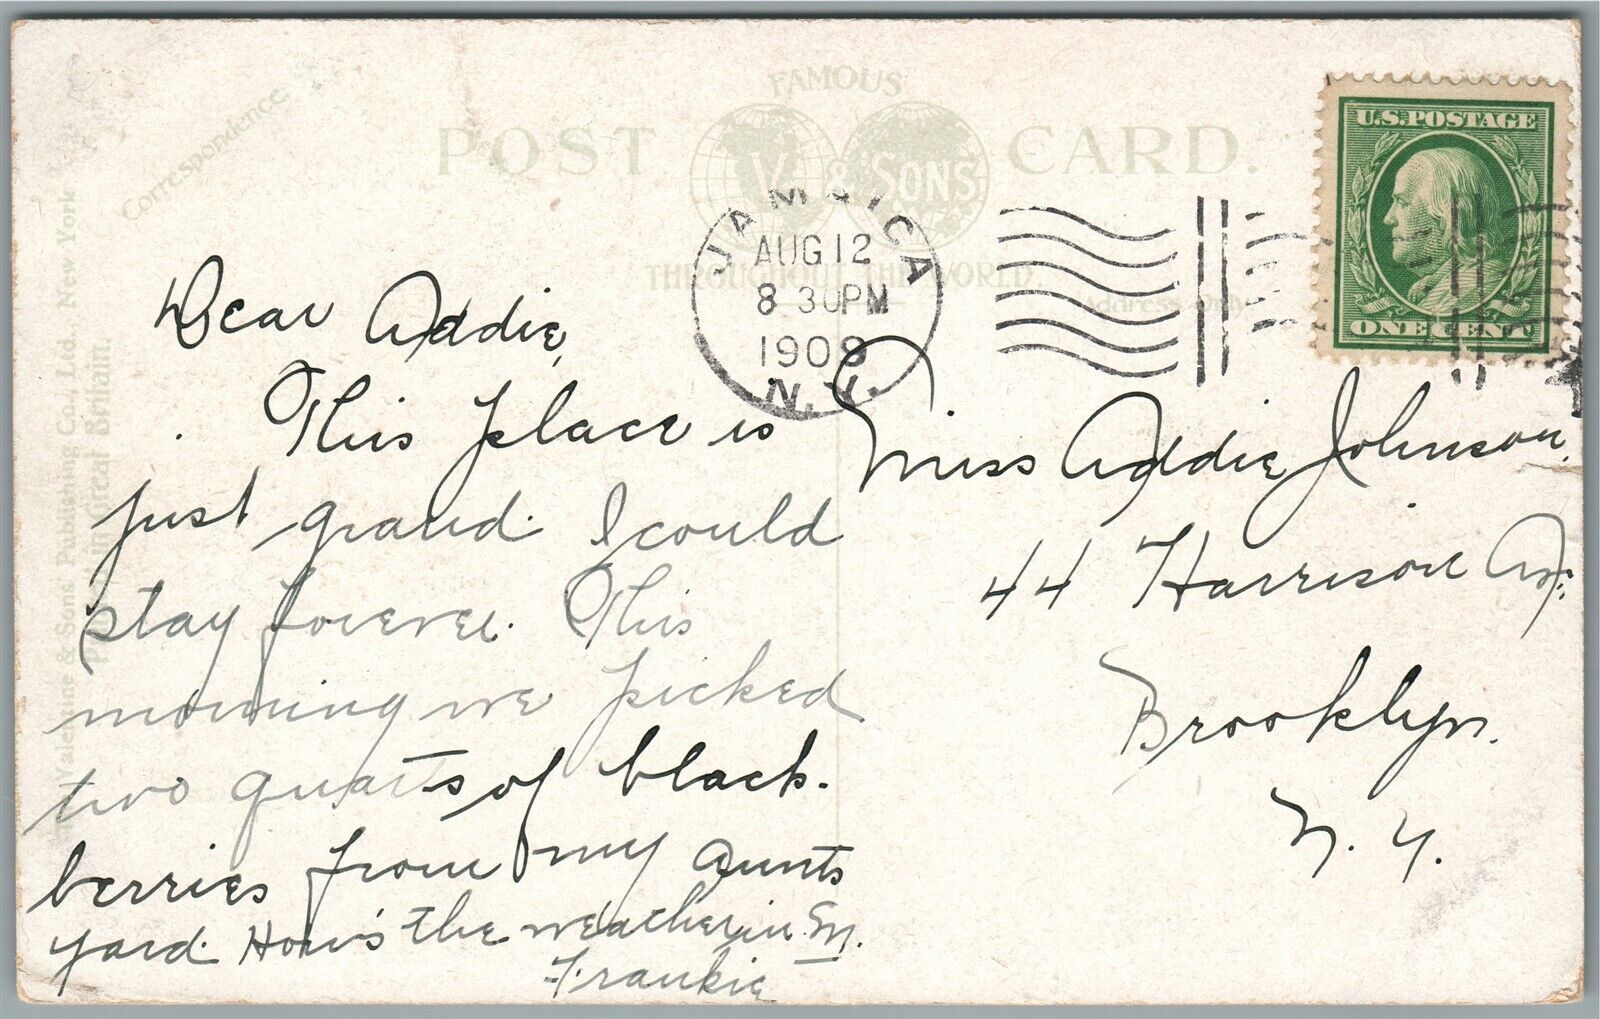 Correspondence.
POST CARD.
FAMOUS
V & SONS
THROUGHOUT THE WORLD
Address Only
The Valentine & Sons Publishing Co., Ltd., New York
Printed in Great Britain.
U.S. POSTAGE
ONE CENT
JAMAICA
AUG 12
8 30 PM
1909
N.Y.
Dear Addie,
This place is
just grand. I could
stay forever. This
morning we picked
two quarts of black-
berries from my aunts
yard. How's the weather in
Frankie
Miss Addie Johnson,
44 Harrison Av.
Brooklyn.
N. Y.